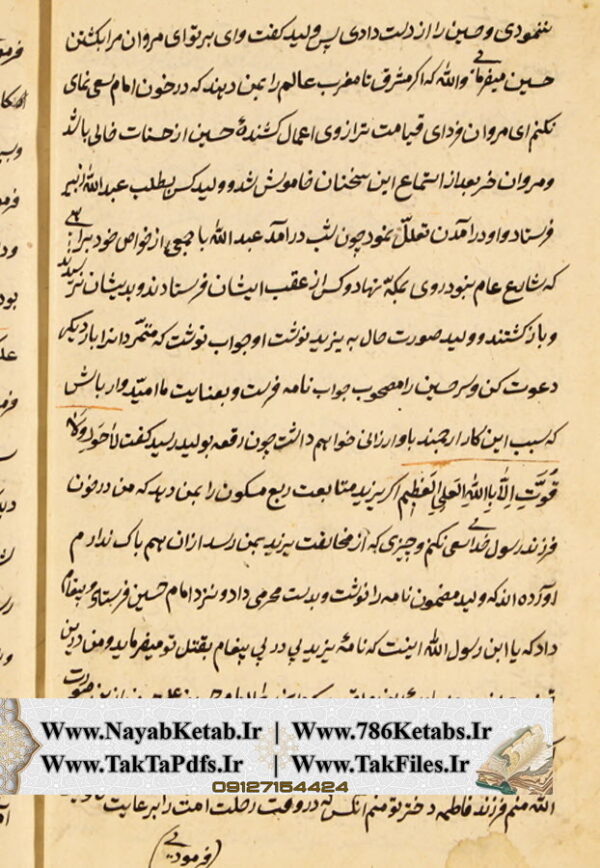 ننمودی و حسین را از دست دادی پس ولید گفت وای بر تو ای مروان مرا بکشتن
حسین میفرمائی والله که اگر مشرق تا مغرب عالم را بمن دهند که در خون امام سعی نمای
نکنم ای مروان فردای قیامت ترازوی اعمال کشندهٔ حسین از حسنات خالی باشد
و مروان خر بعد از استماع این سخنان خاموش شد و ولید کس بطلب عبدالله زبیر
فرستاد و او در آمدن تعلل نمود چون شب درآمد عبدالله با جمعی از خواص خود براهی
که شایع عام نبود روی بمکه نهاد و کس از عقب ایشان فرستادند و بدیشان نرسیدند
و باز گشتند و ولید صورت حال به یزید نوشت او جواب نوشت که متمردانرا بار دیگر
دعوت کن و سر حسین را مصحوب جواب نامه فرست و بعنایت ما امیدوار باش
که سبب این کار ارجمند باو ارزانی خواهم داشت چون رقعه بولید رسید گفت لا حول ولا
قوت الا بالله العلی العظیم اگر یزید متابعت ربع مسکون را بمن دهد که من در خون
فرزند رسول خدا سعی نکنم و چیزی که از مخالفت یزید بمن رسد ازان هم باک ندارم
آورده اند که ولید مضمون نامه را نوشت و بدست محرمی داد و نزد امام حسین فرستاد و پیغام
داد که یا ابن رسول الله اینست که نامهٔ یزید پی در پی پیغام بقتل تو میفرماید و من درین
الله منم فرزند فاطمه دختر تو منم آنکس که در وقت رحلت امت را برعایت
(فرمودی)
www.NayabKetab.Ir | Www.786Ketabs.Ir
Www.TakTaPdfs.Ir | Www.TakFiles.Ir
09127154424